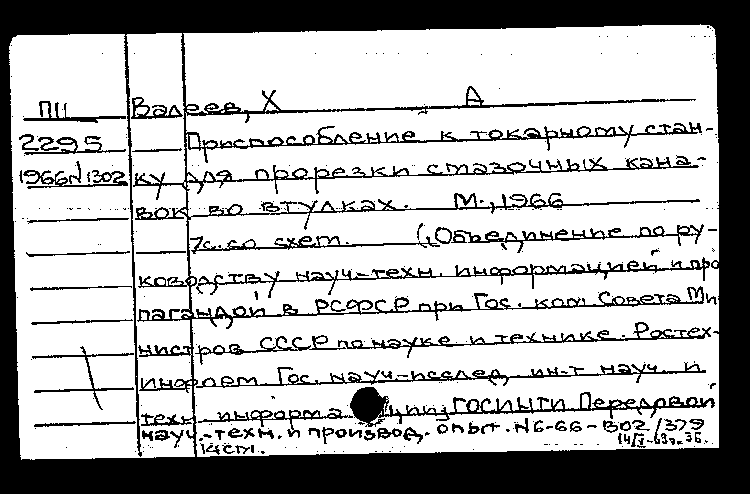 ПН Валеев, Х А
2295 Приспособление к токарному стан-
1966 N1302 ку для прорезки смазочных кана-
вок во втулках. М., 1966
7с. со схем. („Объединение по ру-
ководству науч-техн. информацией и про
пагандой в РСФСР при Гос. ком. Совета Ми-
нистров СССР по науке и технике. Ростех-
информ. Гос. науч-исслед. ин-т науч. и
техн. информации; ГОСИНТИ Передовой
науч.-техн. и производ. опыт. N6-66-1302/379
14см.